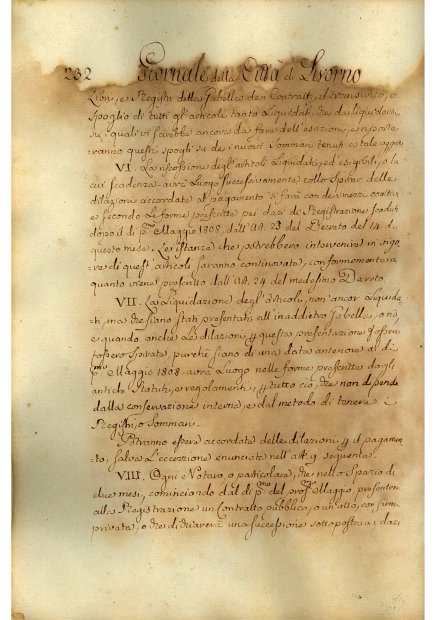 232 Giornale della Città di Livorno
Libri, e Registri della Gabella dei Contratti, ed
Spoglio di tutti gl'articoli tanto Liquidati, che da Liquidarsi
su i quali vi sarebbe ancora da fare dell'esazione, e
questi spogli su dei nuovi Sommari tenuti a tale
VI. La riscossione degl'articoli Liquidati, ed esigibili, o la
cui scadenza avrà Luogo successivamente collo Spirar delle
dilazioni accordate al pagamento si farà con dei
e secondo Le forme prescritte per dazi di Registrazione scaduti
dopo il dì p.mo Maggio 1808, dall'Art. 23 del Decreto del 14 di
questo mese. Le istanze che potrebbero intervenire in
re di quest'articoli saranno continovate, conformemente a
quanto viene prescritto dall'Art. 24 del medesimo Decreto.
VII. La Liquidazione degl'articoli, non ancor Liquida-
ti, ma che siano stati presentati all'inaddietro Gabella, o nò,
e quando anche Le dilazioni p questa presentazione
spirate, purchè siano di una data anteriore al dì
p.mo Maggio 1808 avrà Luogo nelle forme prescritte dagli
antichi Statuti, e regolamenti, p tutto ciò, che non dipenda
dalla conservazione interna, e dal metodo di tenere i
Registri, o Sommari.
Potranno essere accordate delle dilazioni p il pagamen-
to, salva L'eccezzione enunciata nell'Art. 9 seguente.
VIII. Ogni Notaro, o particolare, che nello Spazio di
due mesi, cominciando dal dì p.mo del pros.mo Maggio presenterà
alla Registrazione un Contratto pubblico, o un atto, con firma
privata, o che dichiarerà una successione sottoposta ai dazi